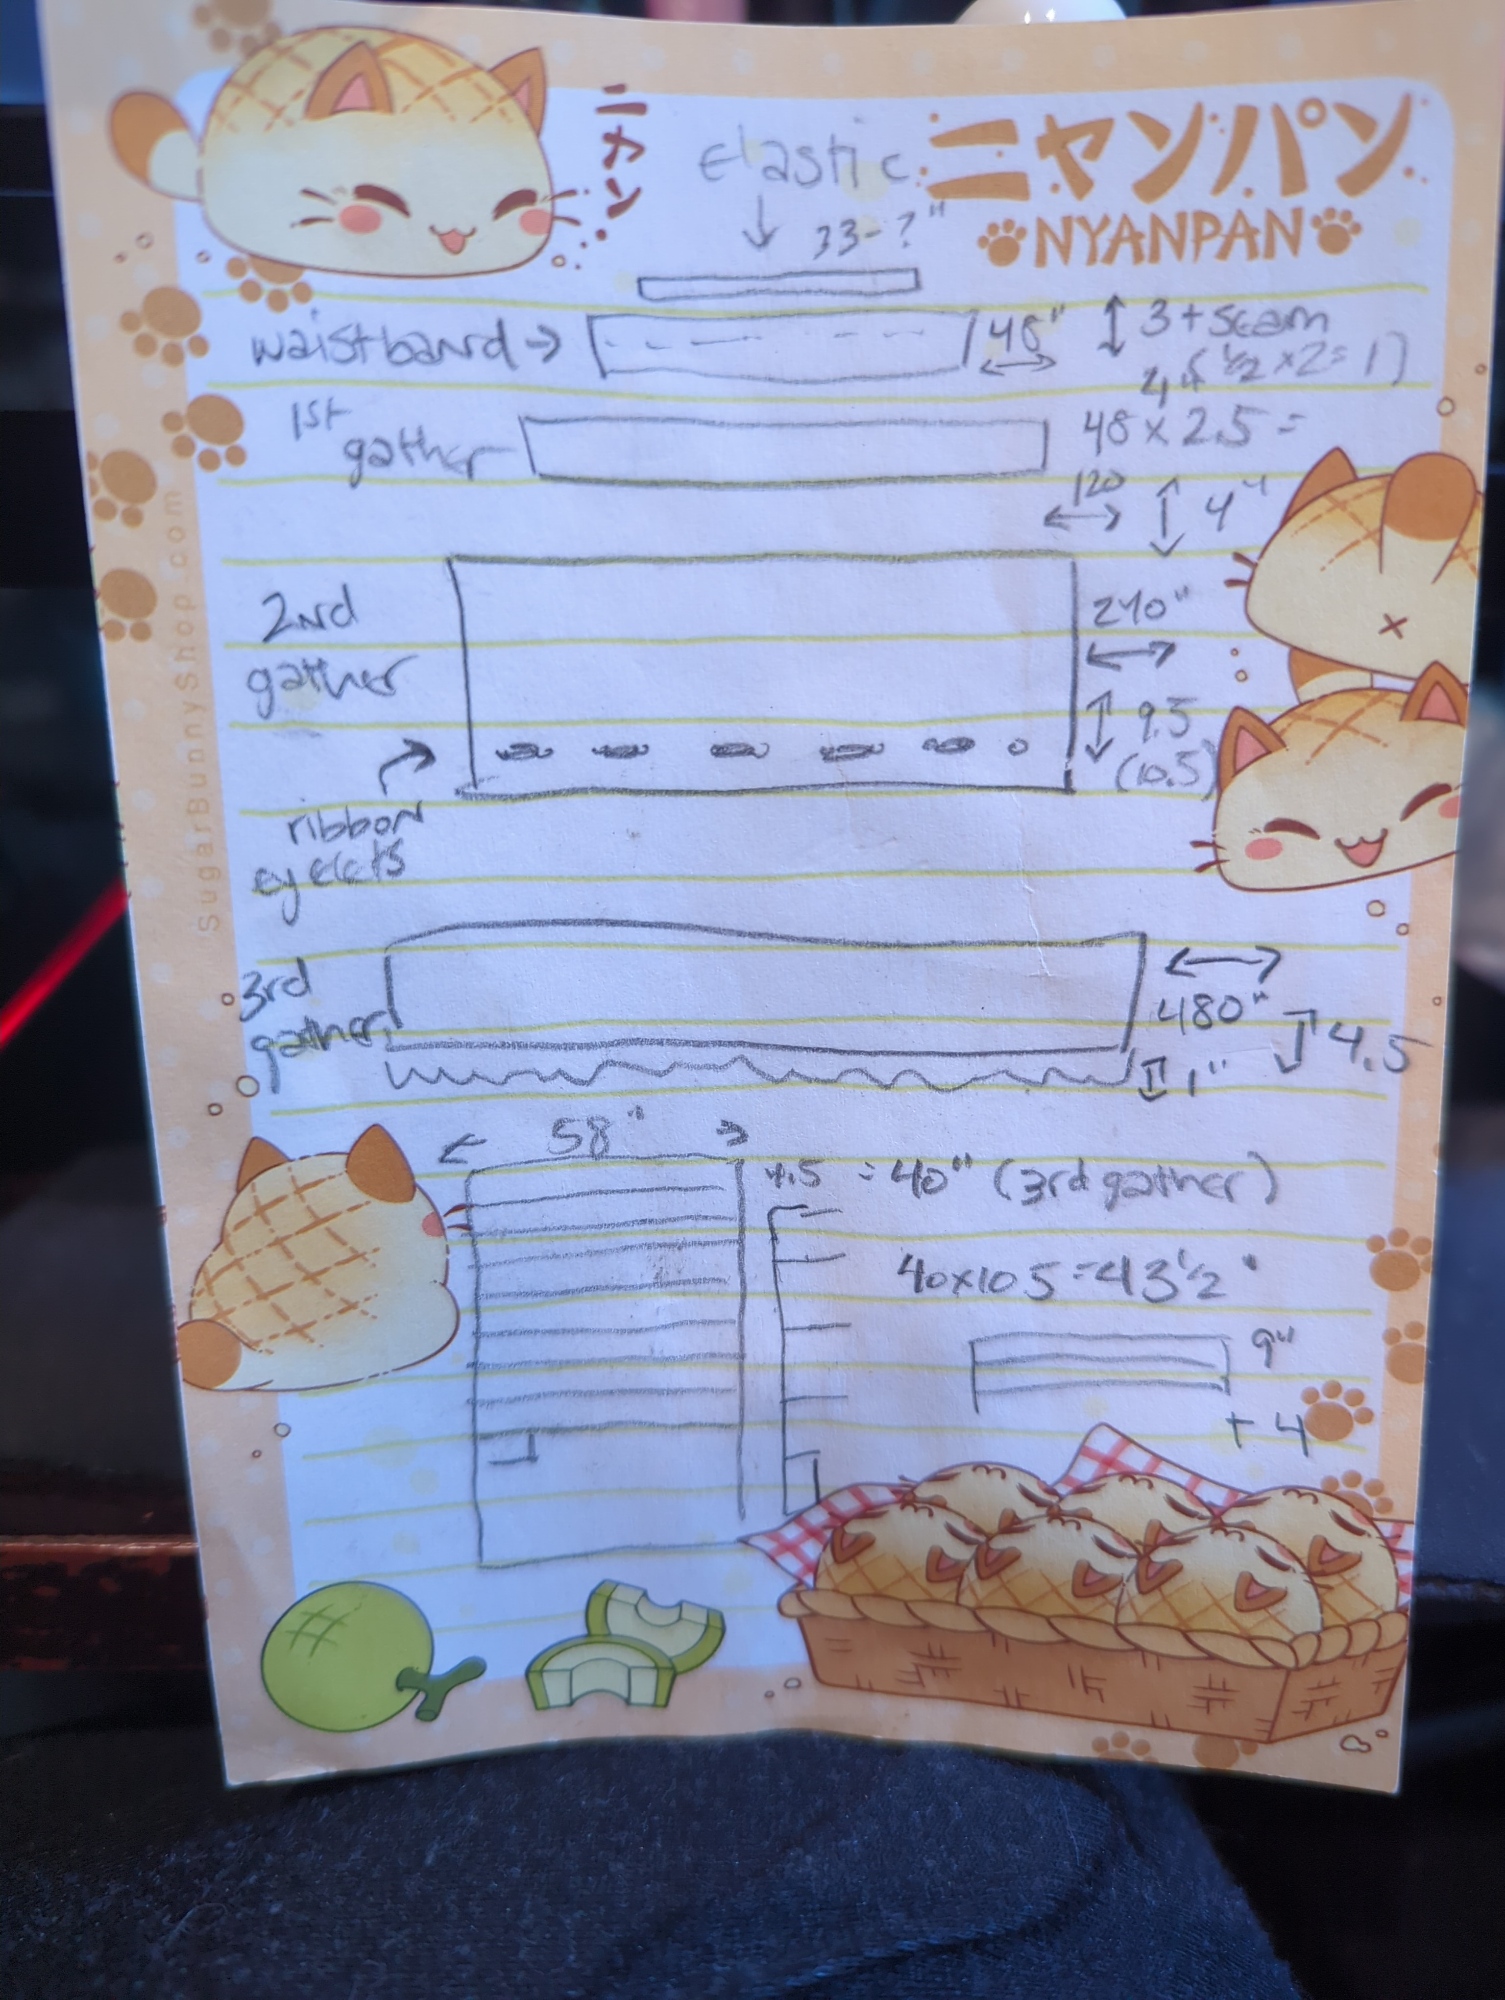 ニャン
Elastic
ニャンパン
NYANPAN
33-?"
waistband →
48"
3 + seam
4 (½ x 2 = 1)
1st
gather
48 x 2.5 =
120
4"
2nd
gather
240"
9.5
(10.5)
ribbon
eyelets
3rd
gather
480"
4.5
1"
58"
4.5 = 40" (3rd gather)
40x10 5 = 43½"
9"
+ 4
SugarBunnyShop.com